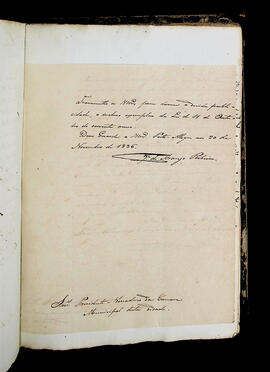 Transmitto a Vmces. para terem a devida publi-
cidade, os inclusos exemplares da Lei de 11 de Outu-
bro do corrente anno.
Deos Guarde a Vmces. Porto Alegre em 20 de
Novembro de 1836.
de Araujo Ribeiro
Snrs. Presidente Vereadores da Camara
Municipal desta Cidade.